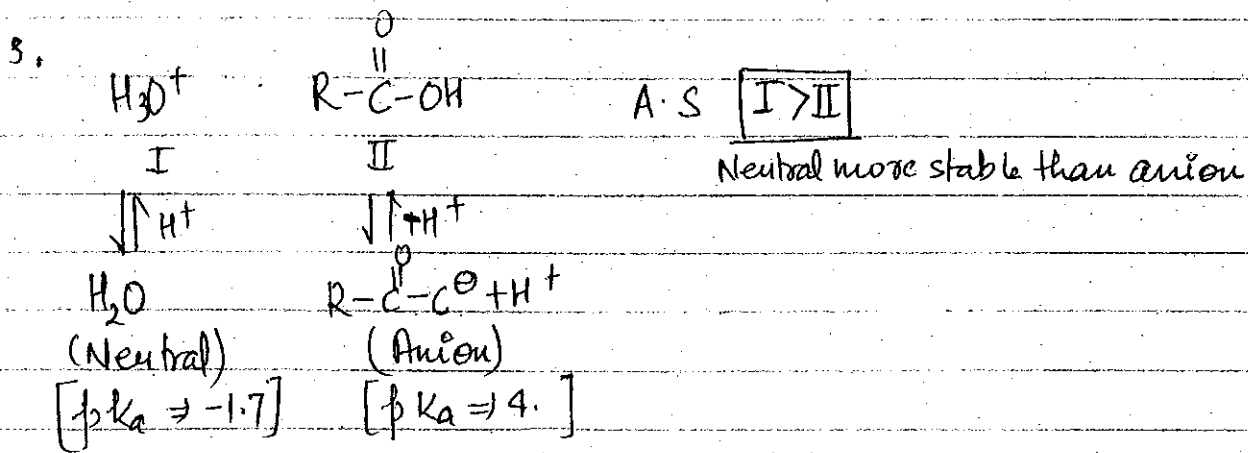 3.
O
||
H3O+ R-C-OH A.S I>II
I II Neutral more stable than anion
⇃↾ H+ ⇃↾ +H+
O
||
H2O R-C-C⊖ +H+
(Neutral) (Anion)
[pKa ⇒ -1.7] [pKa ⇒ 4. ]